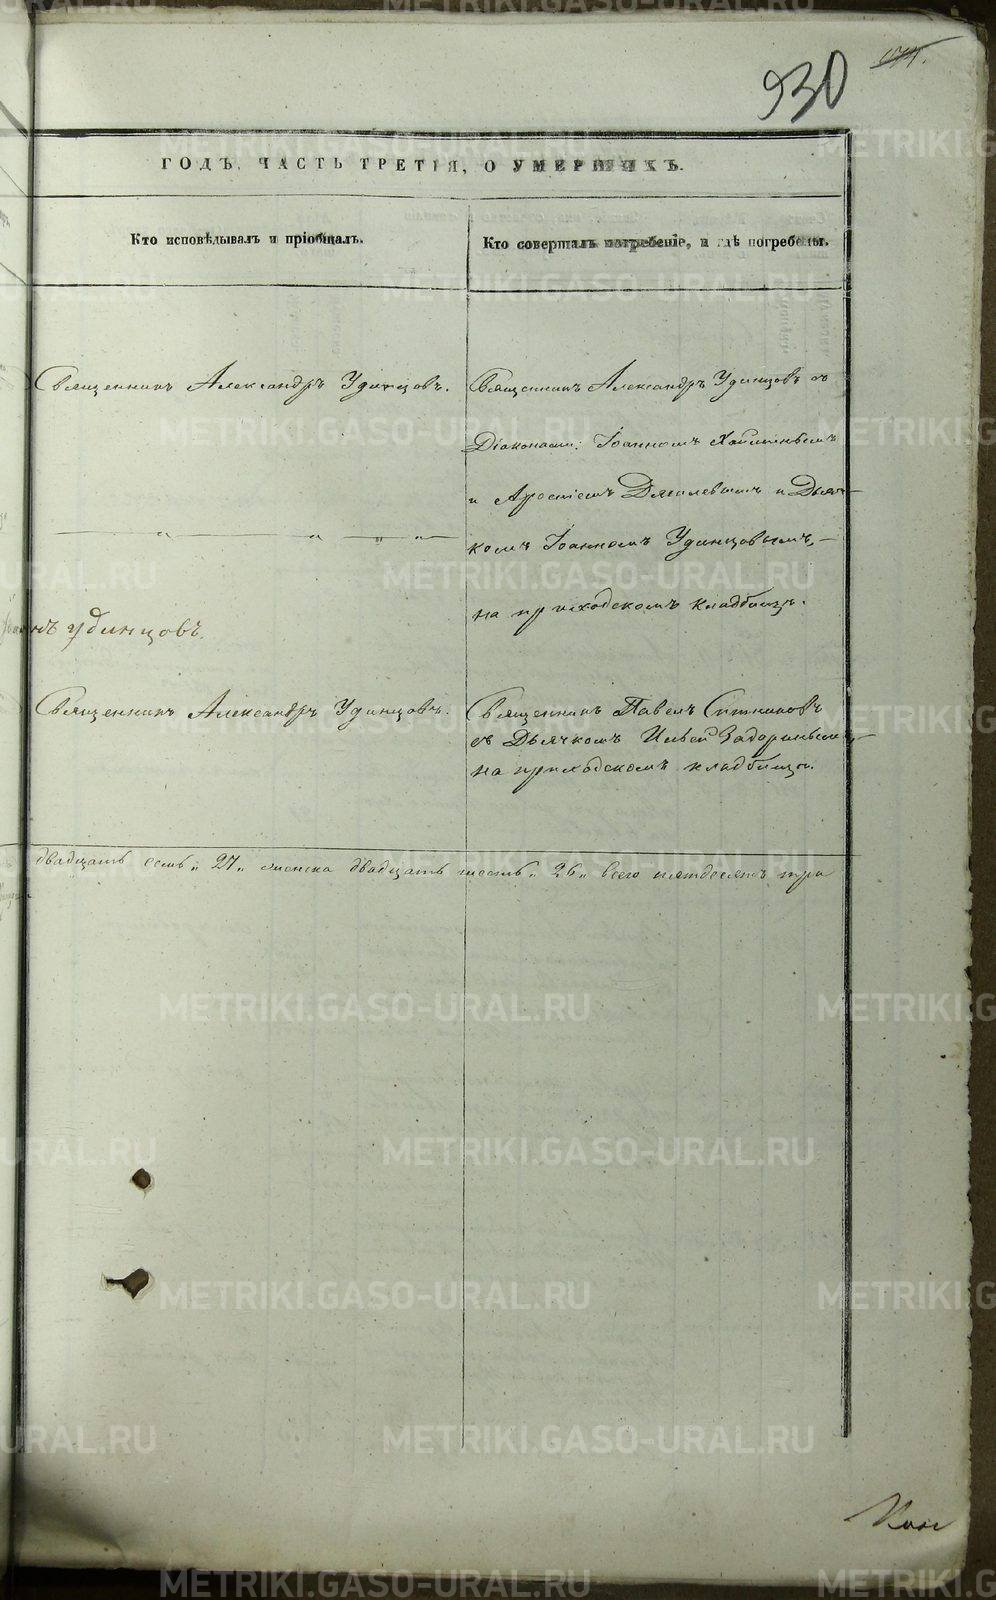 930
ГОДЪ, ЧАСТЬ ТРЕТІЯ, О УМЕРШИХЪ.
Кто исповѣдывалъ и пріобщалъ.
Кто совершалъ погребеніе, и гдѣ погребены.
Священникъ Александръ Удинцовъ.
Священникъ Александръ Удинцовъ съ
Діаконами: Іоанномъ
и Дьяч-
комъ Іоанномъ Удинцовымъ,—
на приходскомъ кладбищѣ.
нъ удинцовъ.
Священникъ Александръ Удинцовъ.
Священникъ Павелъ Ситниковъ
съ Дьячкомъ Ильей Задоринымъ,—
на приходскомъ кладбищѣ.
двадцать семь „27„ женска двадцать шесть „26„ всего пятдесятъ три
METRIKI.GASO-URAL.RU